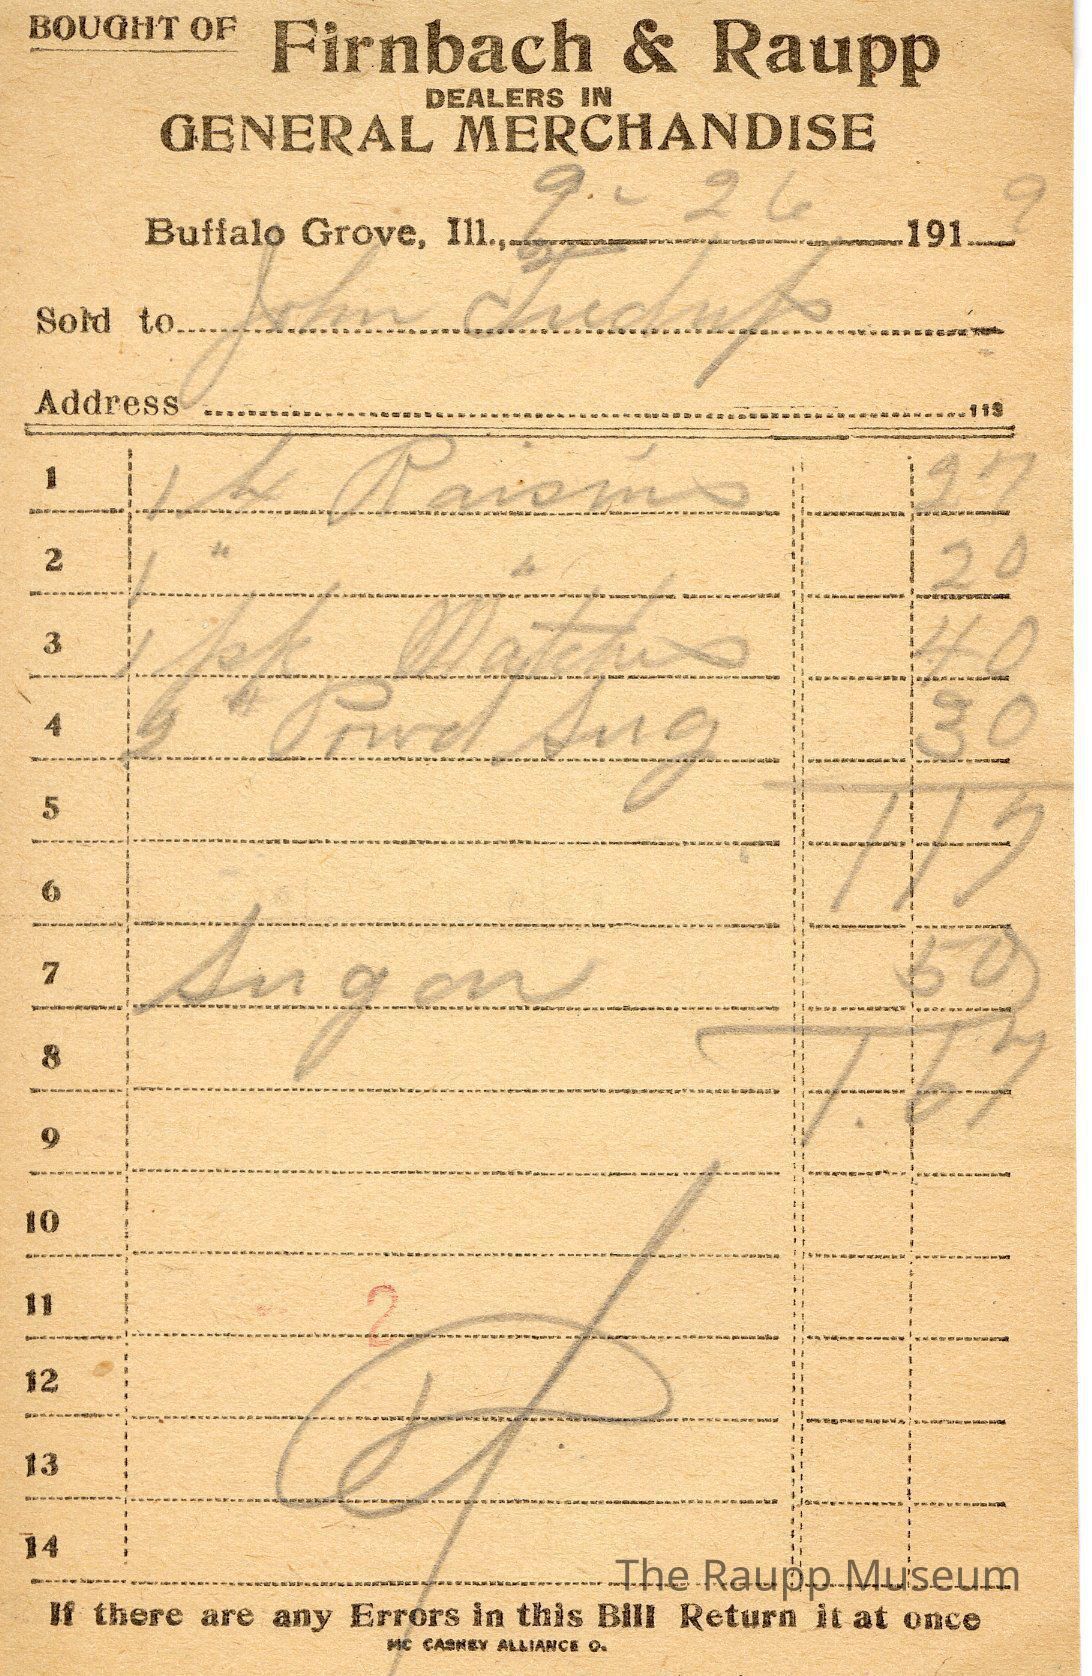 BOUGHT OF Firnbach & Raupp
DEALERS IN
GENERAL MERCHANDISE
Buffalo Grove, Ill., 9 - 26 191 9
Sold to John
Address 113
1 1 lb Raisins 27
2 1 " " 20
3 1 pk Matches 40
4 2 " Powd Sug 30
5 117
6
7 Sugar 50
8 1.67
9
10
11 2
12
13
14
The Raupp Museum
If there are any Errors in this Bill Return it at once
MC CASKEY ALLIANCE O.